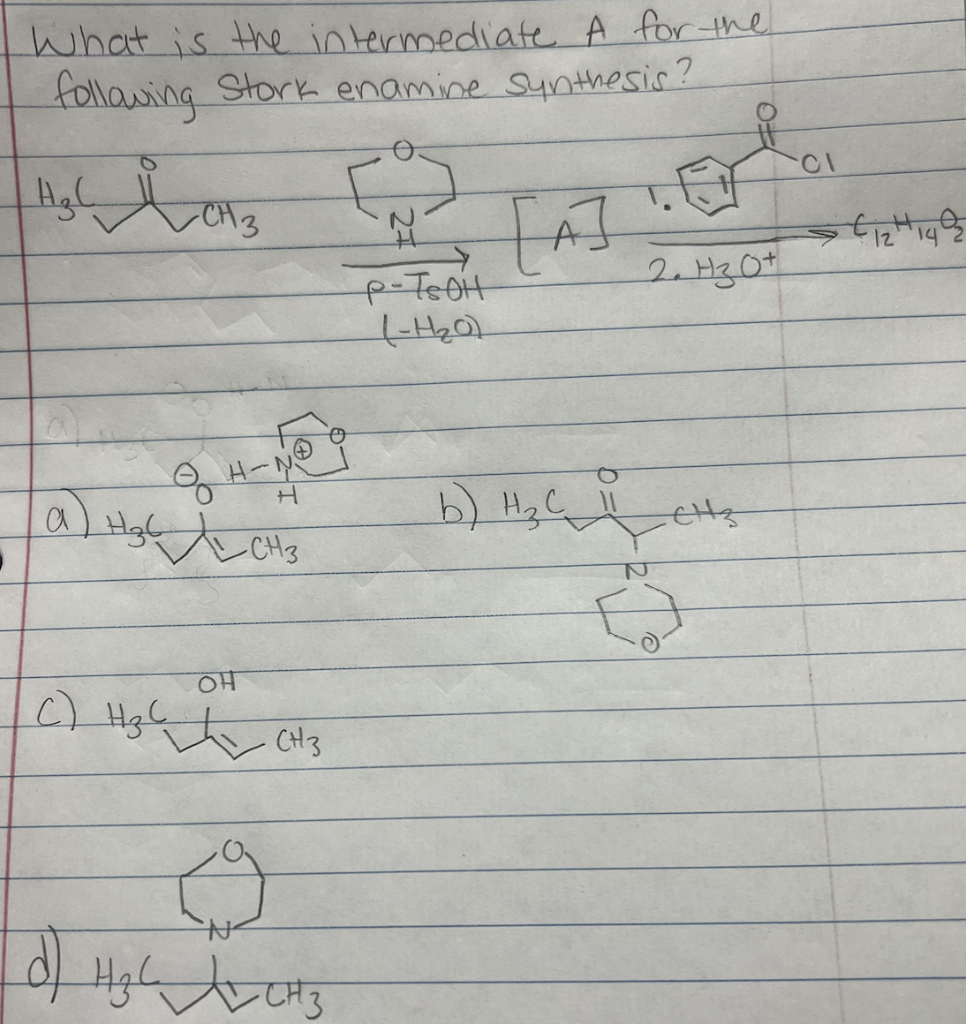 What is the intermediate A for the
following Stork enamine synthesis?
O
H3C
CH3
O
N
H
p-TsOH
(-H2O)
[A]
1.
O
Cl
2. H3O+
C12H14O2
a) H3C
⊖
O
H-N⊕
H
O
CH3
b) H3C
O
CH3
N
O
c) H3C
OH
CH3
O
N
d) H3C
CH3